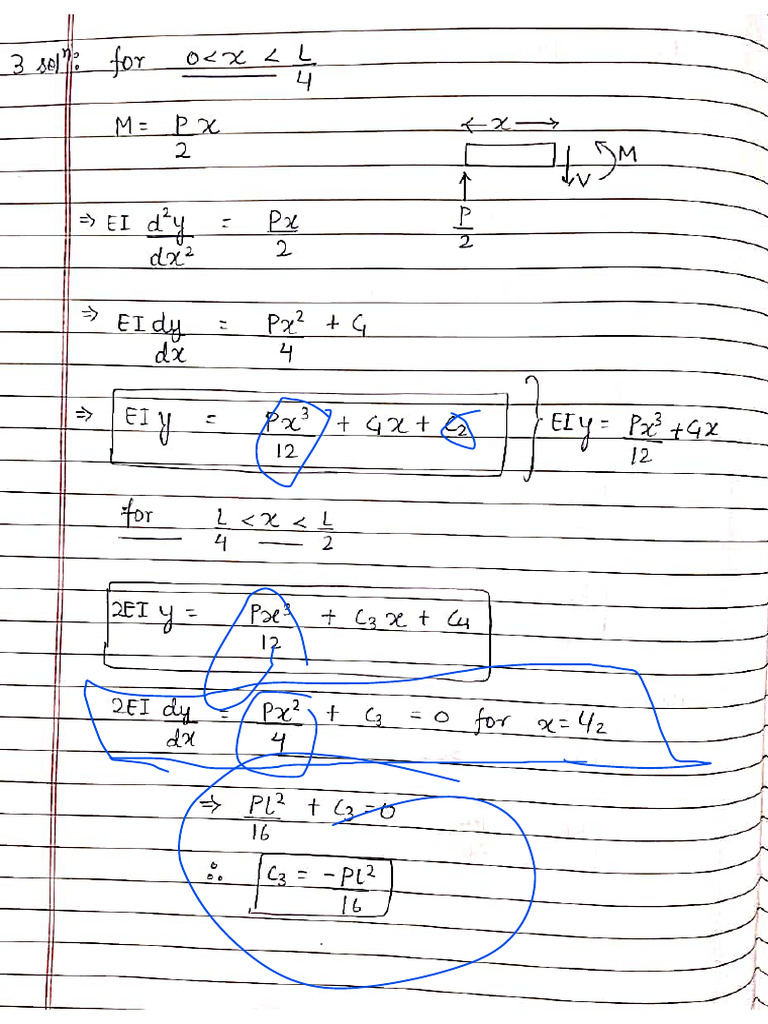 3 solⁿ: for 0<x<L/4
M = Px/2
← x →
M
V
P/2
⇒ EI d²y/dx² = Px/2
⇒ EI dy/dx = Px²/4 + C₁
⇒ EI y = Px³/12 + C₁x + C₂ } EI y = Px³/12 + C₁x
for L/4 < x < L/2
2EI y = Px³/12 + C₃x + C₄
2EI dy/dx = Px²/4 + C₃ = 0 for x = L/2
⇒ Pl²/16 + C₃ = 0
∴ C₃ = -Pl²/16